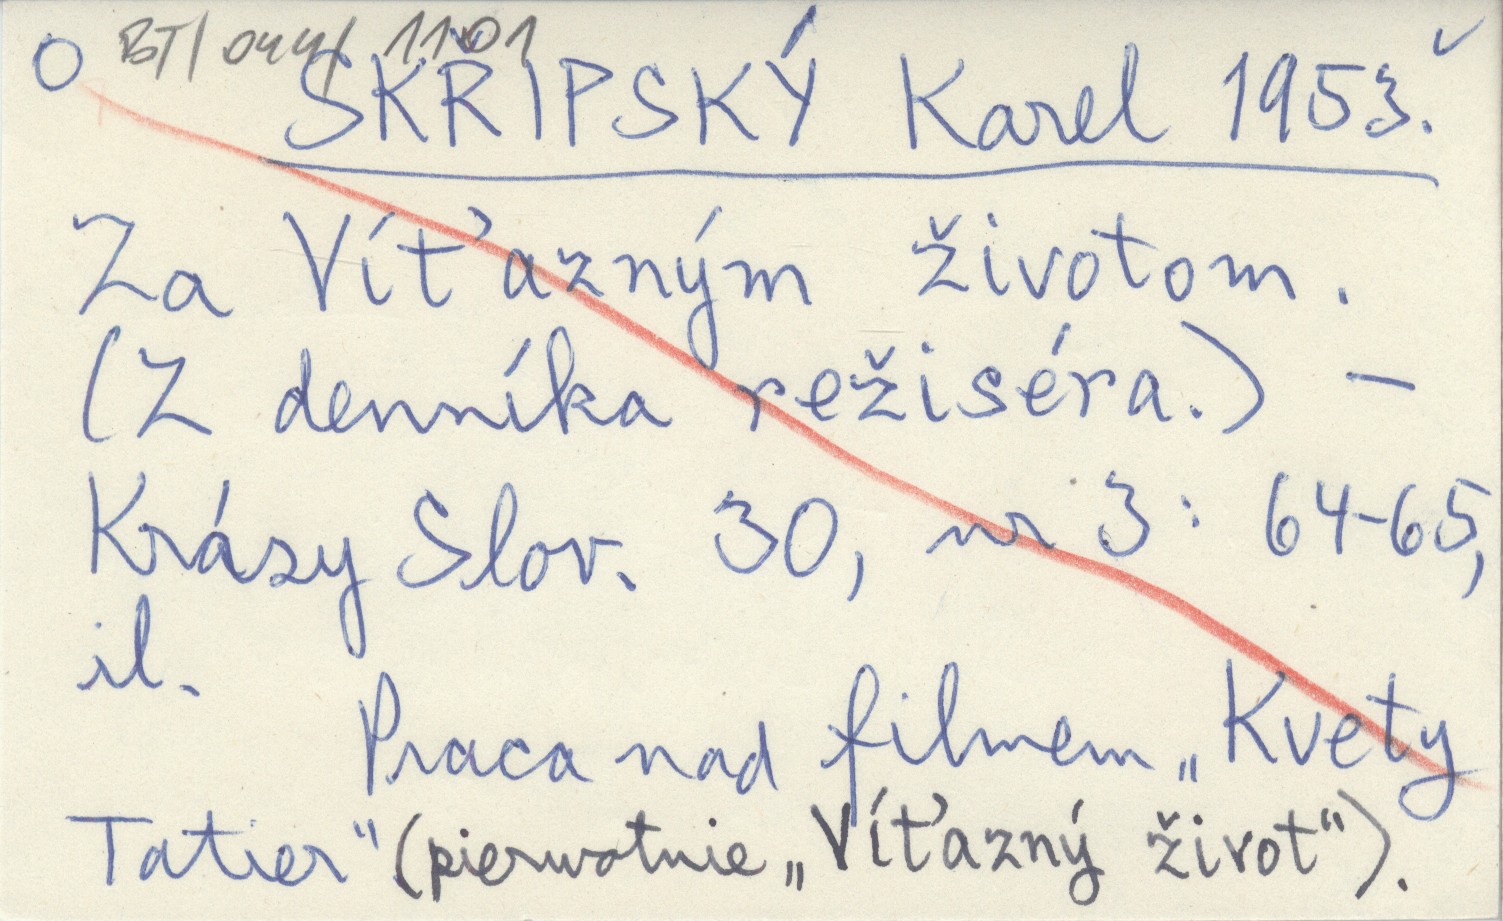 O BT/044/1101
SKŘIPSKÝ Karel 1953.
Za Víťazným životom.
(Z denníka režiséra.) –
Krásy Slov. 30, nr 3: 64-65,
il.
Praca nad filmem „Kvety
Tatier" (pierwotnie „Víťazný život").